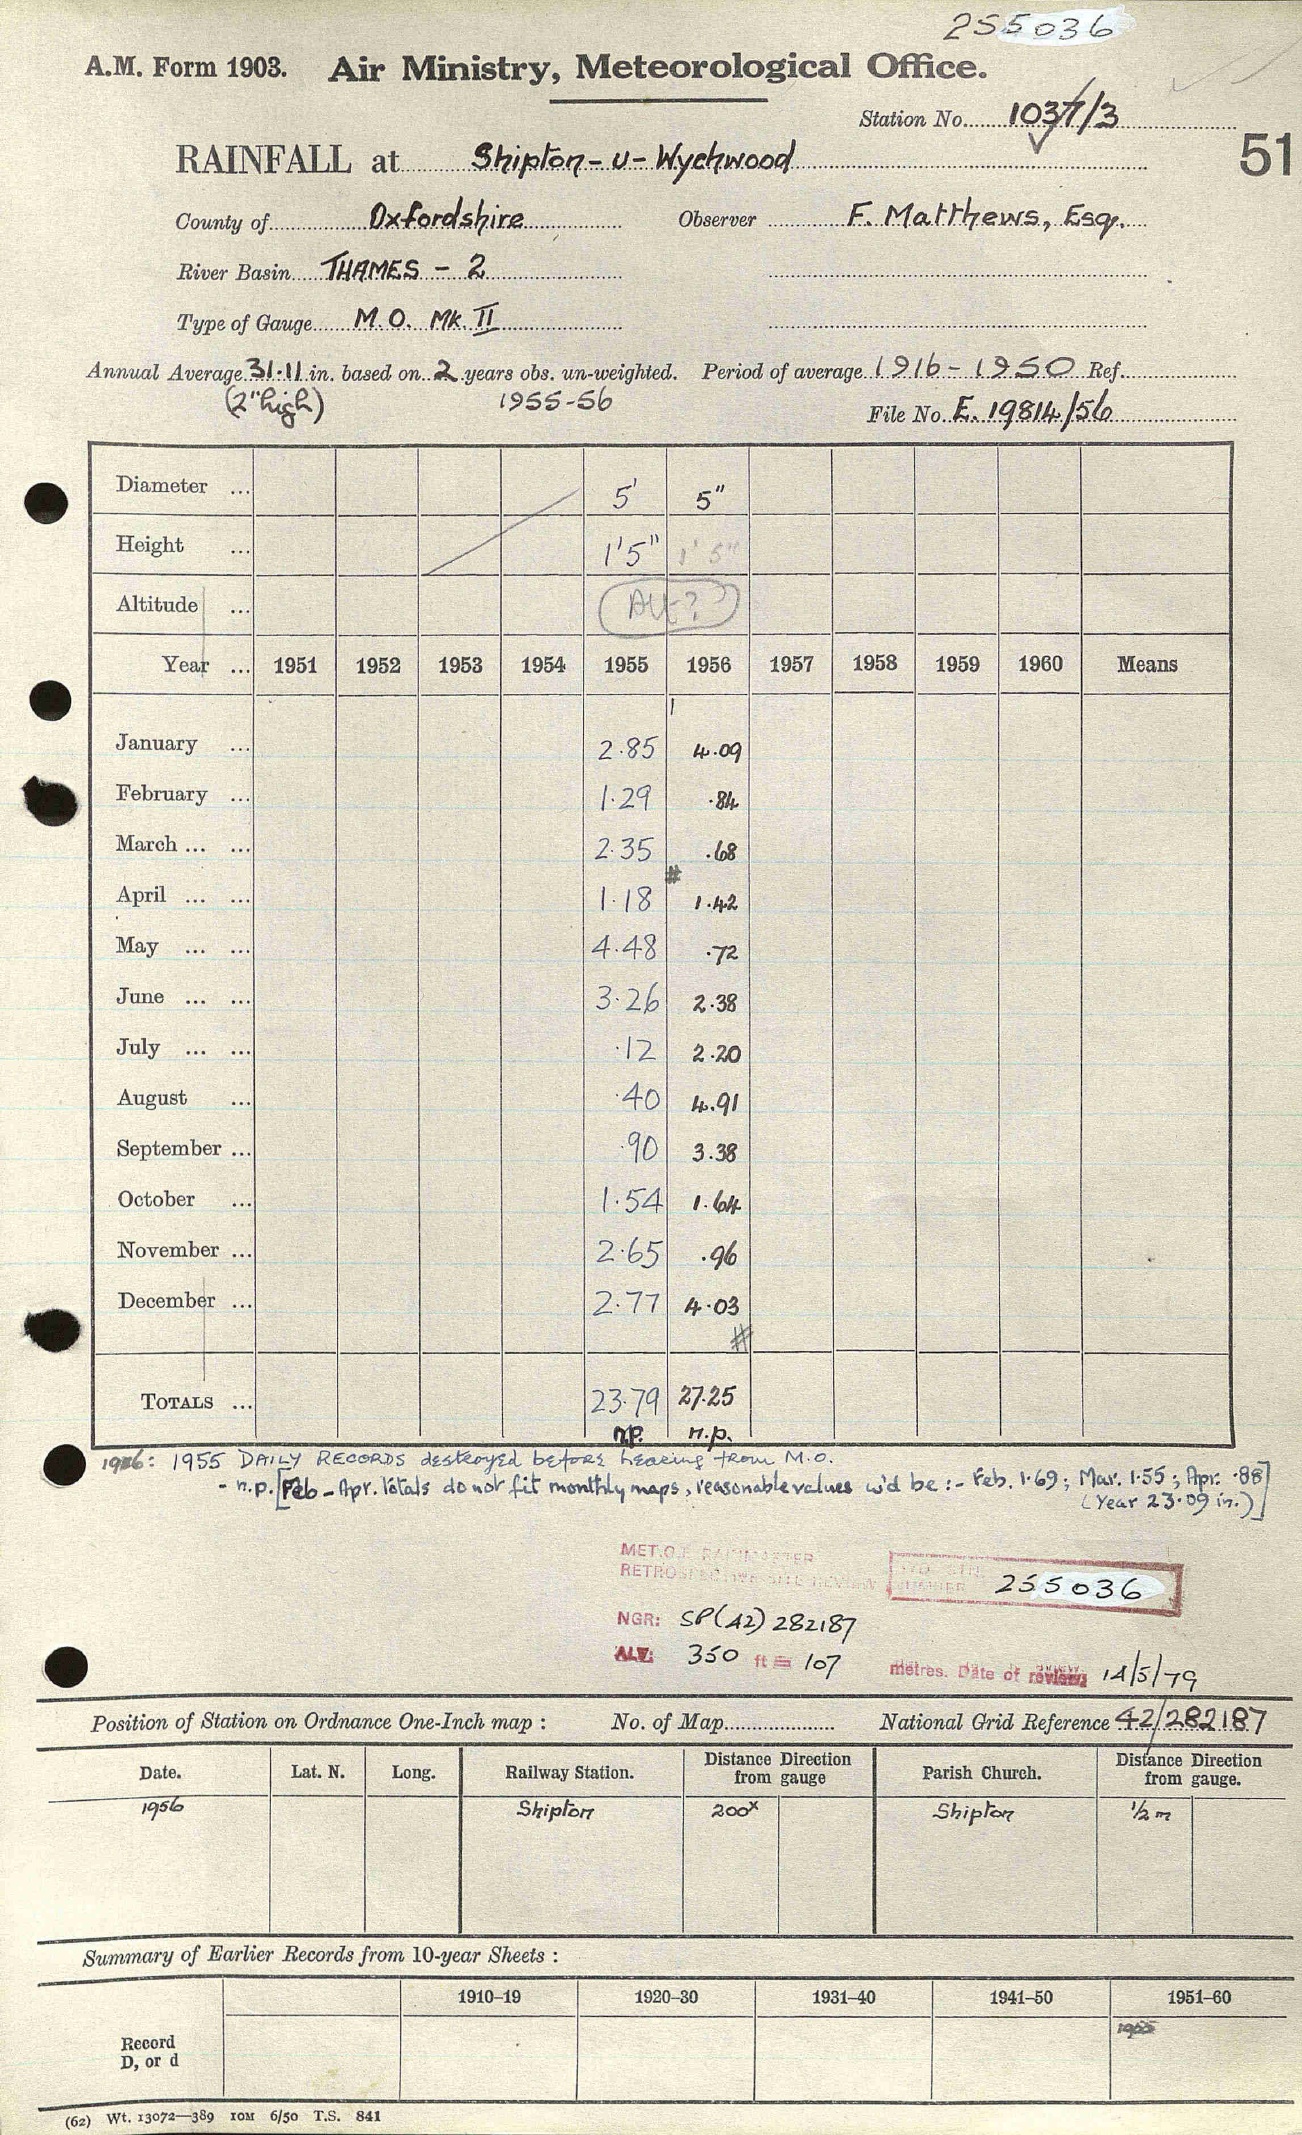 255036
A.M. Form 1903. Air Ministry, Meteorological Office.
Station No. 1037/3
51
RAINFALL at Shipton-u-Wychwood
County of Oxfordshire Observer F. Matthews, Esq.
River Basin THAMES - 2
Type of Gauge M.O. Mk II
Annual Average 31.11 in. based on 2 years obs. un-weighted. Period of average 1916-1950 Ref.
(2" high) 1955-56
File No. E. 19814/56
Diameter ... 5' 5"
Height ... 1'5" 1'5"
Altitude ... Alt?
Year ... 1951 1952 1953 1954 1955 1956 1957 1958 1959 1960 Means
January ... 2.85 4.09
February ... 1.29 .84
March ... ... 2.35 .68
#
April ... ... 1.18 1.42
May ... ... 4.48 .72
June ... ... 3.26 2.38
July ... ... .12 2.20
August ... .40 4.91
September ... .90 3.38
October ... 1.54 1.64
November ... 2.65 .96
December ... 2.77 4.03
#
TOTALS ... 23.79 27.25
n.p. n.p.
1956: 1955 DAILY RECORDS destroyed before hearing from M.O.
- n.p. [Feb - Apr. totals do not fit monthly maps, reasonable values w'd be :- Feb. 1.69; Mar. 1.55; Apr. .88
(Year 23.09 in.)]
MET.O.
255036
NGR: SP(42) 282187
ALT: 350 ft = 107 metres. Date of review: 14/5/79
Position of Station on Ordnance One-Inch map : No. of Map National Grid Reference 42/282187
Date. Lat. N. Long. Railway Station. Distance Direction from gauge Parish Church. Distance Direction from gauge.
1956 Shipton 200x Shipton 1/2 m
Summary of Earlier Records from 10-year Sheets :
1910-19 1920-30 1931-40 1941-50 1951-60
1955
Record
D, or d
(62) Wt. 13072—389 10M 6/50 T.S. 841